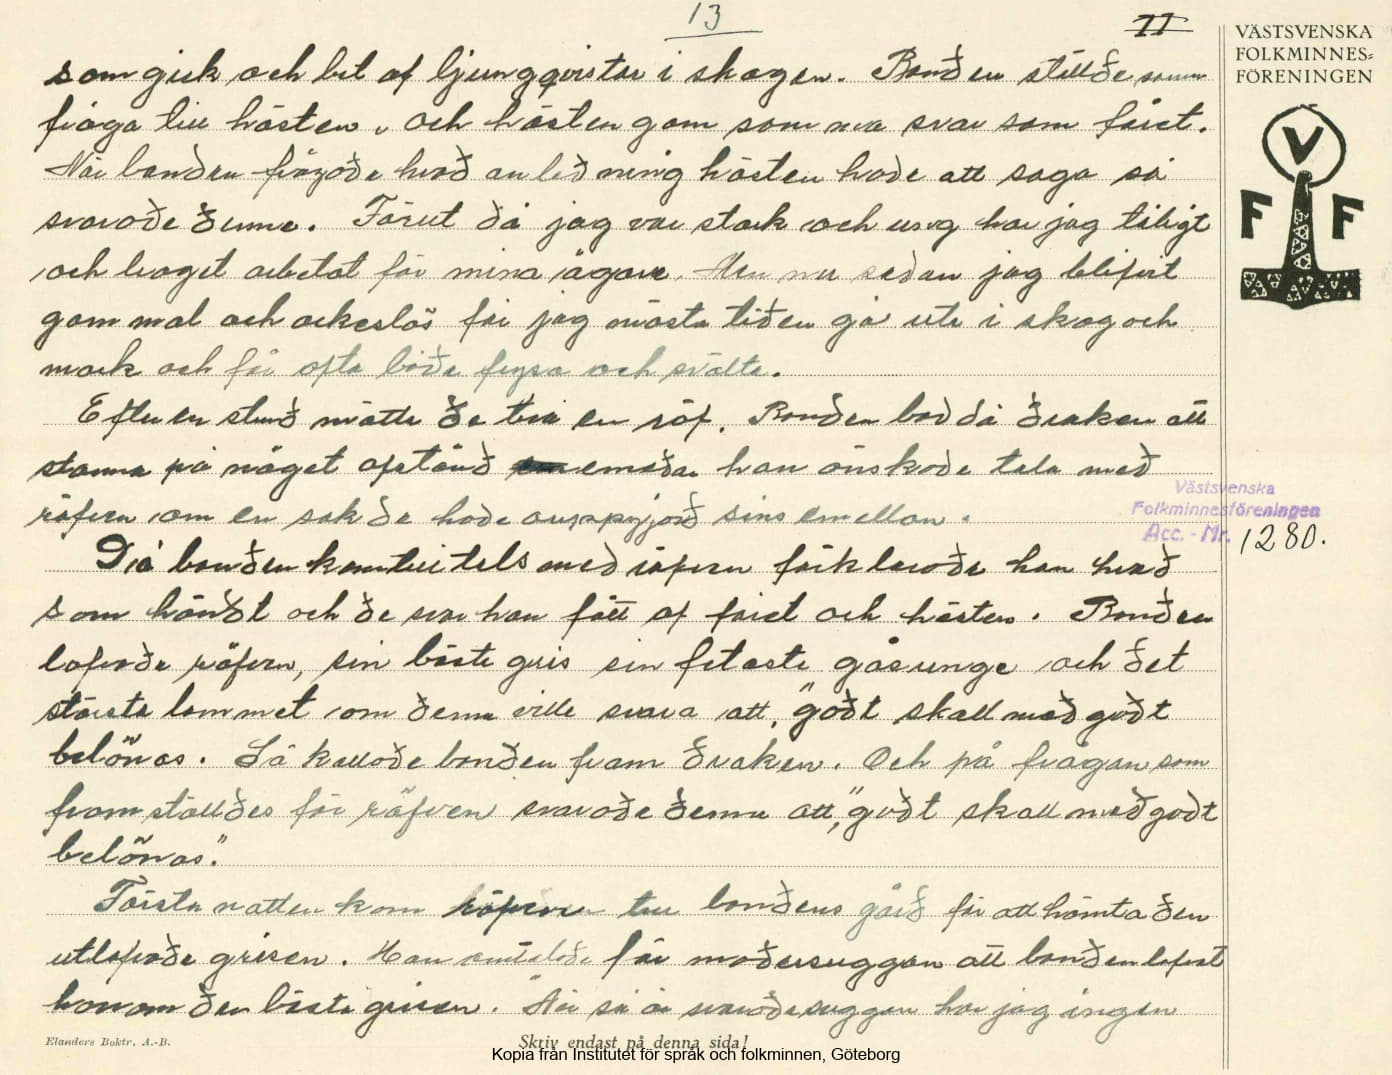 13
11
VÄSTSVENSKA
FOLKMINNES-
FÖRENINGEN
V
F F
som gick och bet af ljungqvistar i skogen. Bonden stälde samma
fråga till hästen, och hästen gam som nva svar som fåret.
När bonden frågade hvad anledning hästen hade att saga så
svarade denne. Förut då jag var stark och ung har jag tåligt
och braget arbetat för mina ägare. Men nu sedan jag blifvit
gammal och orkeslös får jag mästa tiden gå ute i skog och
mark och får ofta båda frysa och svälta.
Efter en stund mötte de två en räf. Bonden bad då draken att
stanna på något afstånd emedan han önskade tala med
räfven om en sak de hade sins emellan.
Då bonden kom till tals med räfven förklarade han hvad
som händt och de svar han fått af fåret och hästen. Bonden
lofvade räfven, sin bäste gris sin fetaste gåsunge och det
största lammet om denne ville svara att, "godt skall med godt
belönas. Så kallade bonden fram draken. Och på frågan som
framställdes för räfven svarade denne att, "godt skall med godt
belönas."
Första natten kom räfven till bondens gård för att hämta den
utlofvade grisen. Han omtalade för modersuggan att bonden lofvat
honom den bästa grisen. När så är svarade suggan har jag ingen
Västsvenska
Folkminnesföreningen
Acc.-Nr. 1280.
Elanders Boktr. A.-B.
Skriv endast på denna sida!
Kopia från Institutet för språk och folkminnen, Göteborg